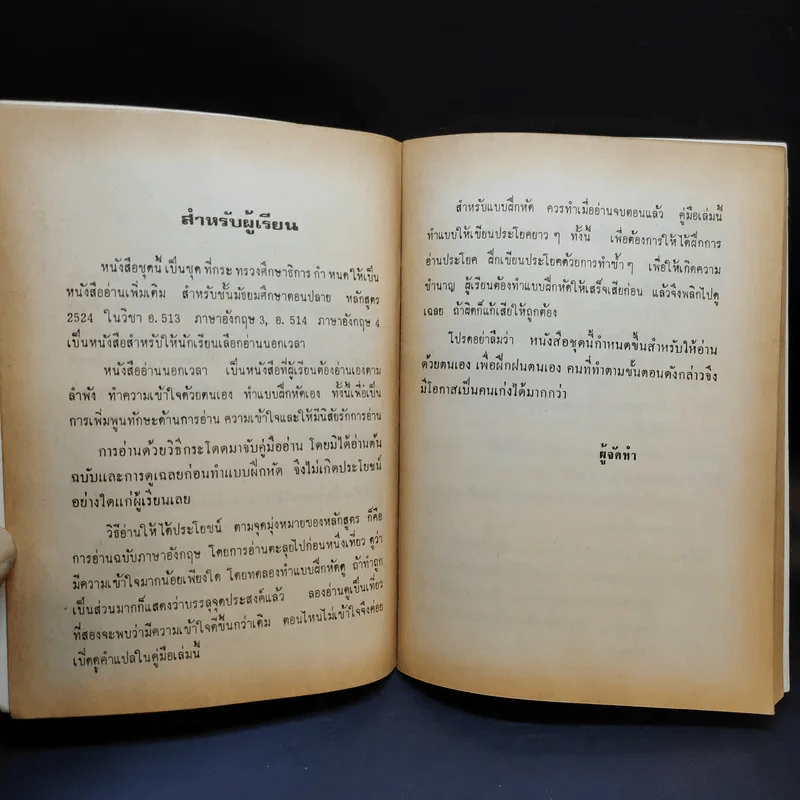 สำหรับผู้เรียน
หนังสือชุดนี้ เป็นชุด ที่กระ ทรวงศึกษาธิการ กำ หนด ให้เป็น
หนังสืออ่านเพิ่มเติม สำหรับชั้นมัธยมศึกษาตอนปลาย หลักสูตร
2524 ในวิชา อ. 513 ภาษาอังกฤษ 3, อ. 514 ภาษาอังกฤษ 4
เป็นหนังสือสำหรับให้นักเรียนเลือกอ่านนอกเวลา
หนังสืออ่านนอกเวลา เป็นหนังสือที่ผู้เรียนต้องอ่านเองตาม
ลำพัง ทำความเข้าใจด้วยตนเอง ทำแบบฝึกหัดเอง ทั้งนี้เพื่อเป็น
การเพิ่มพูนทักษะด้านการอ่าน ความเข้าใจและให้มีนิสัยรักการอ่าน
การอ่านด้วยวิธีกระโดดมาจับคู่มืออ่าน โดยมิได้อ่านต้น
ฉบับและการดูเฉลยก่อนทำแบบฝึกหัด จึงไม่เกิดประโยชน์
อย่างใดแก่ผู้เรียนเลย
วิธีอ่านให้ได้ประโยชน์ ตามจุดมุ่งหมายของหลักสูตร ก็คือ
การอ่านฉบับภาษาอังกฤษ โดยการอ่านตะลุยไปก่อนหนึ่งเที่ยว ดูว่า
มีความเข้าใจมากน้อยเพียงใด โดยทดลองทำแบบฝึกหัดดู ถ้าทำถูก
เป็นส่วนมากก็แสดงว่าบรรลุจุดประสงค์แล้ว ลองอ่านดูเป็นเที่ยว
ที่สองจะพบว่ามีความเข้าใจดีขึ้นกว่าเดิม ตอนไหนไม่เข้าใจจึงค่อย
เปิดดูคำแปลในคู่มือเล่มนี้
สำหรับแบบฝึกหัด ควรทำเมื่ออ่านจบตอนแล้ว คู่มือเล่มนี้
ทำแบบให้เขียนประโยคยาว ๆ ทั้งนี้ เพื่อต้องการให้ได้ฝึกการ
อ่านประโยค ฝึกเขียนประโยคด้วยการทำซ้ำ ๆ เพื่อให้เกิดความ
ชำนาญ ผู้เรียนต้องทำแบบฝึกหัดให้เสร็จเสียก่อน แล้วจึงพลิกไปดู
เฉลย ถ้าผิดก็แก้เสียให้ถูกต้อง
โปรดอย่าลืมว่า หนังสือชุดนี้กำหนดขึ้นสำหรับให้อ่าน
ด้วยตนเอง เพื่อฝึกฝนตนเอง คนที่ทำตามขั้นตอนดังกล่าวจึง
มีโอกาสเป็นคนเก่งได้มากกว่า
ผู้จัดทำ